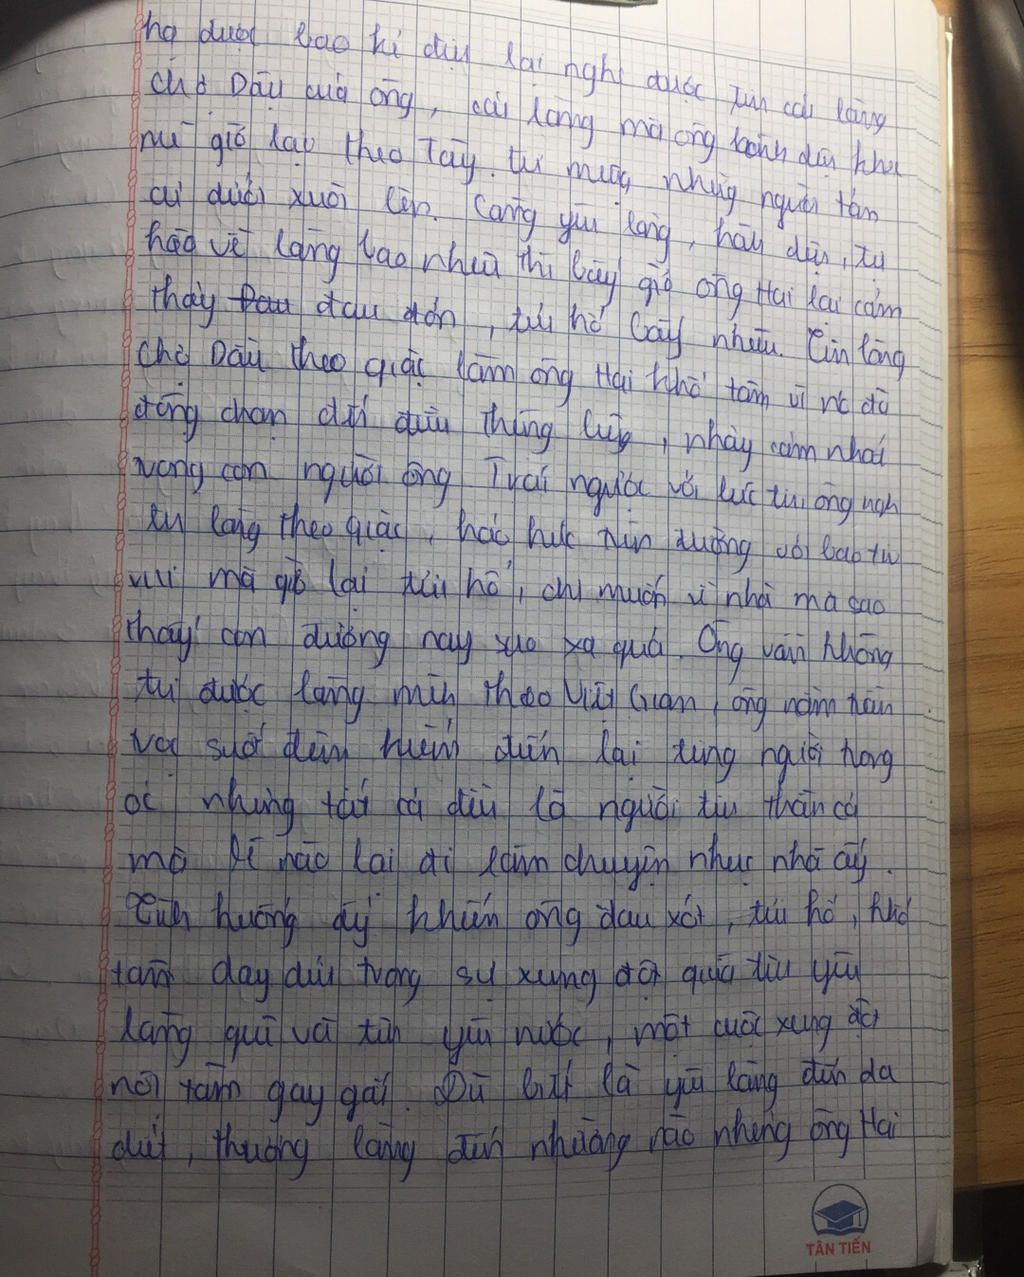 hạ được bao kỉ đây lại nghe được tin cái làng
chợ Dầu của ông, cái làng mà ông hãnh diện khi
giờ lại theo Tây từ miệng những người tản
cư dưới xuôi lên. Càng yêu làng, hãnh diện, tự
hào về làng bao nhiêu thì bây giờ ông Hai lại cảm
thấy đau đớn, tủi hổ bấy nhiêu. Tin làng
chợ Dầu theo giặc làm ông Hai khổ tâm vì nó đã
động chạm đến điều thiêng liêng, nhạy cảm nhất
trong con người ông Trái ngược với lúc tin ông nghe
tin làng theo giặc, háo hức trên đường với bao tin
vui mà giờ lại tủi hổ, chỉ muốn về nhà mà sao
thấy con đường nay xao xa quá. Ông vẫn không
tin được làng mình theo Việt Gian, ông nằm trằn
trọc suốt đêm kiểm điểm lại từng người trong
óc nhưng tất cả đều là người tin thần cả
mà lẽ nào lại đi làm chuyện nhục nhã ấy.
Tình huống ấy khiến ông đau xót, tủi hổ, khổ
tâm day dứt trong sự xung đột giữa tình yêu
làng quê và tình yêu nước, một cuộc xung đột
nội tâm gay gắt. Dù biết là yêu làng đến da
diết, thương làng đến nhường nào nhưng ông Hai
TÂN TIẾN